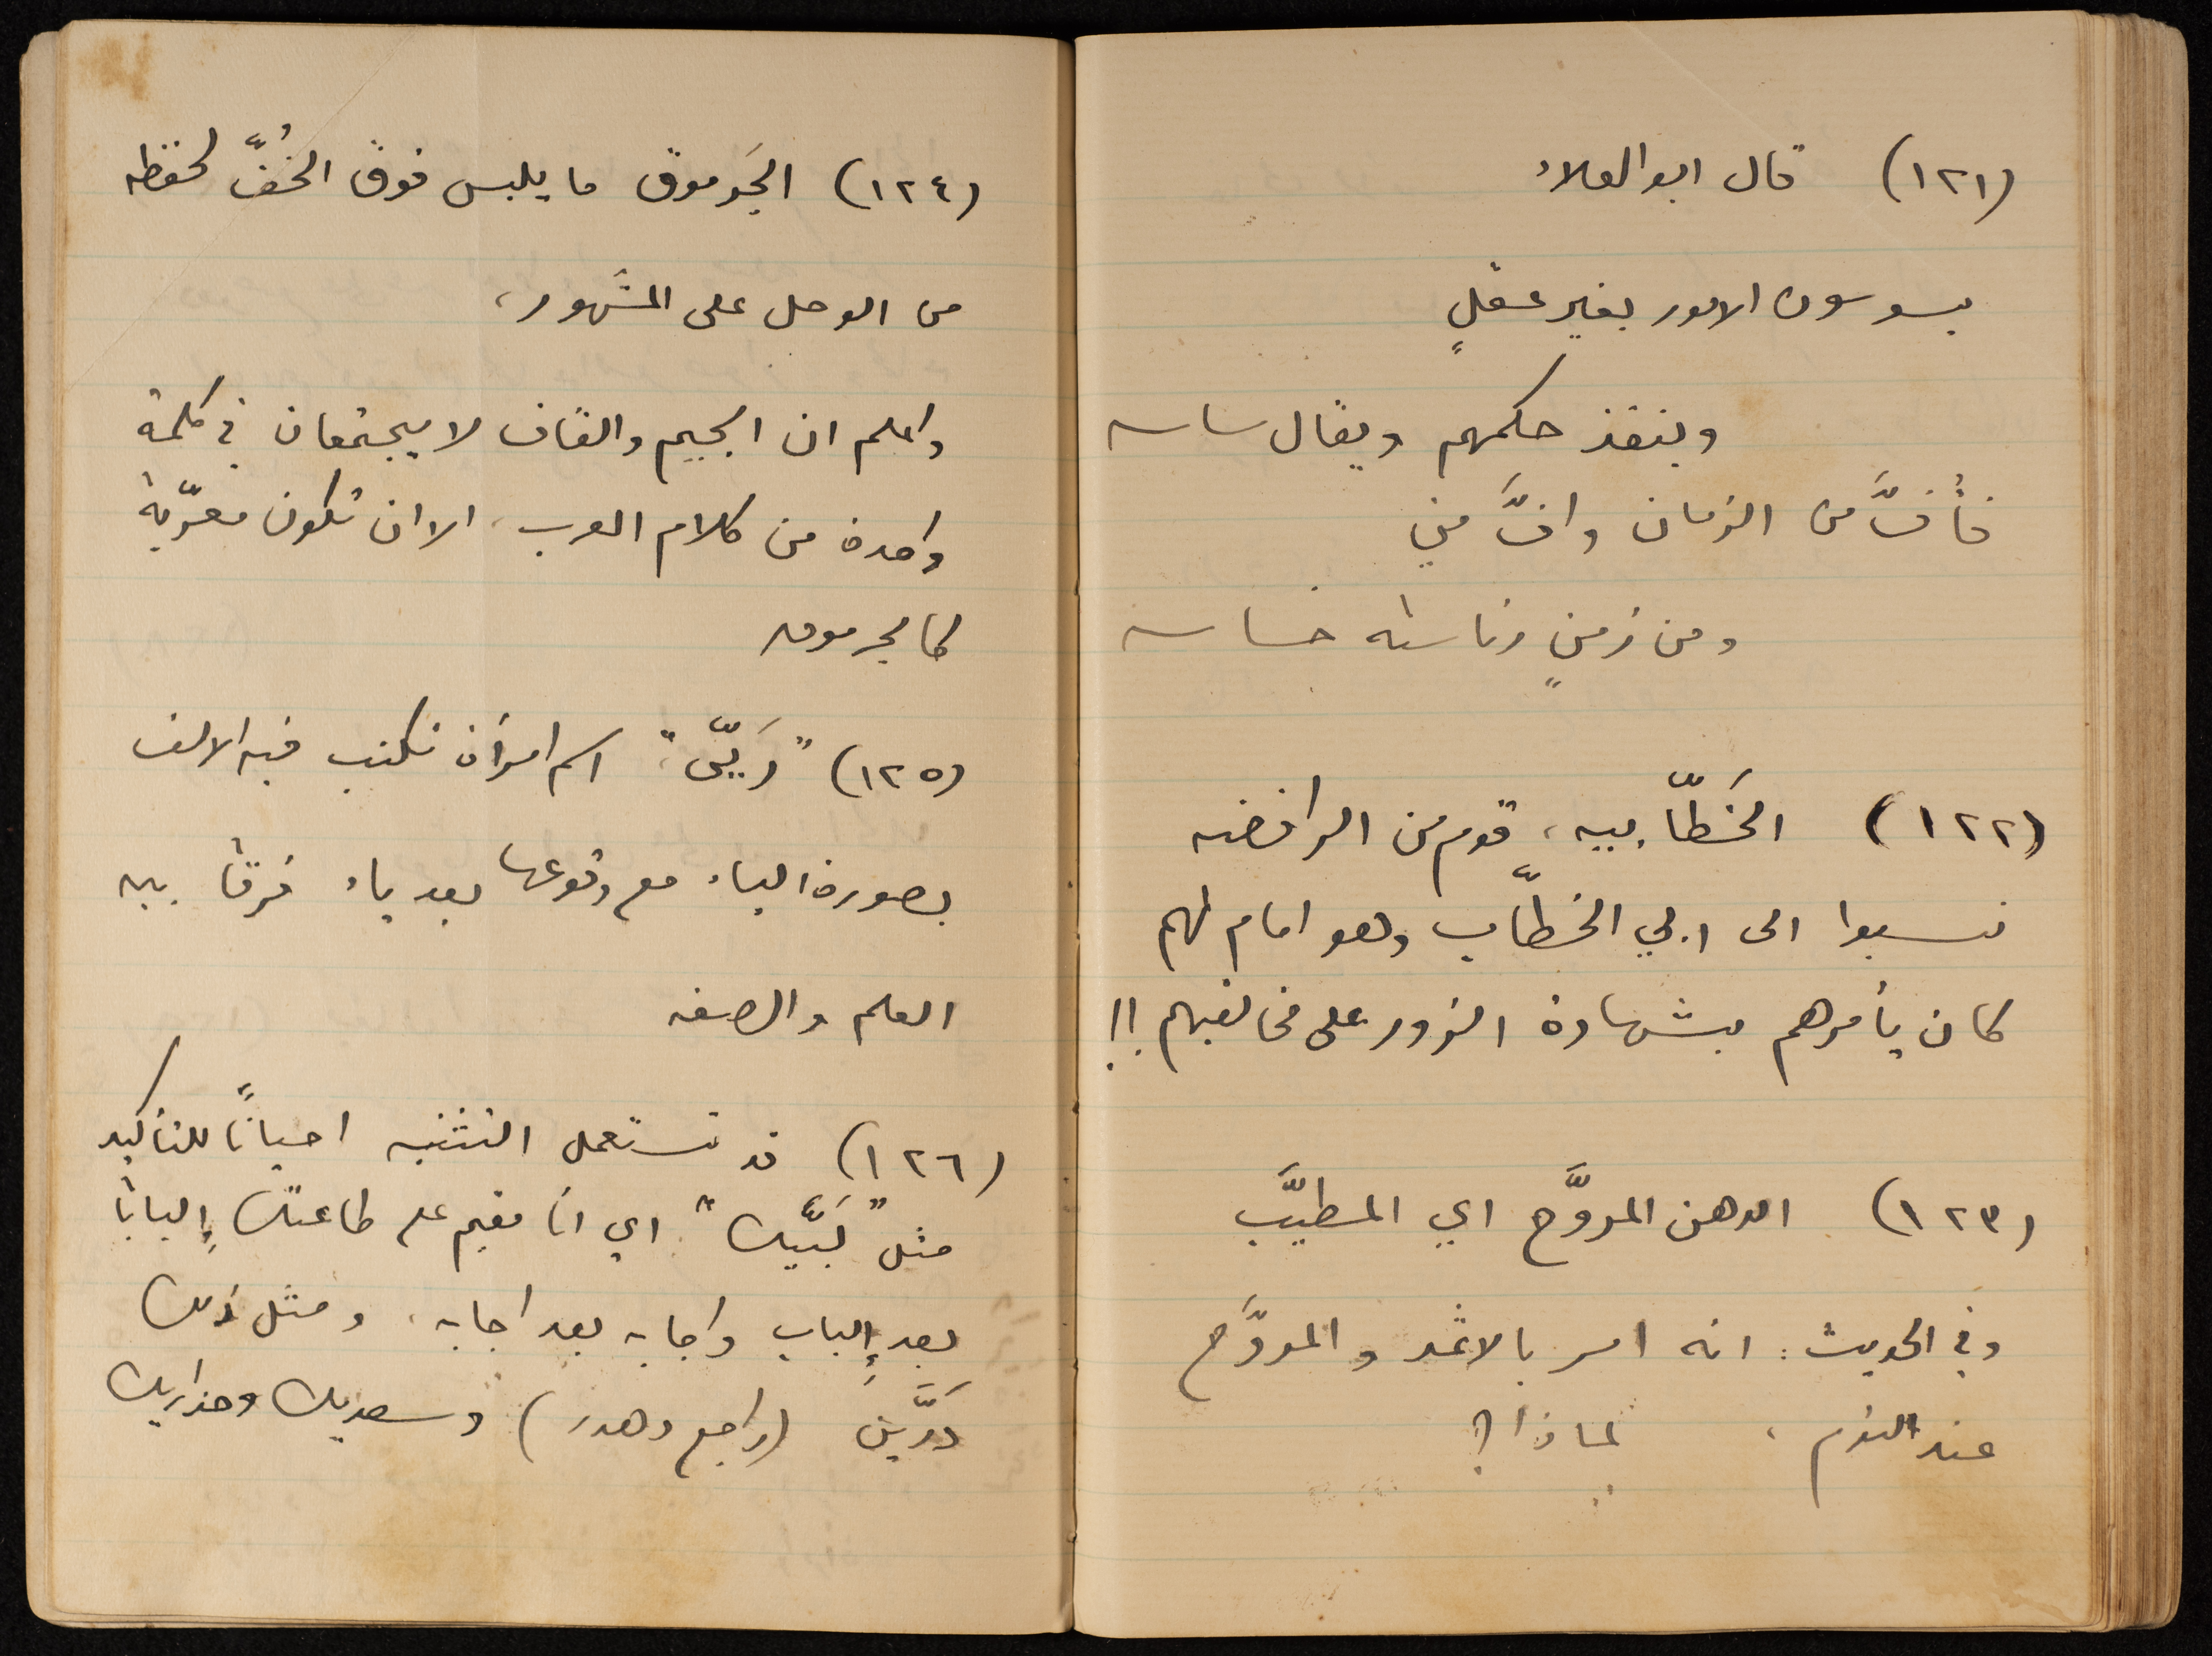 (١٢١) قال ابو العلاء
يسوسون الامور بغير عقلٍ
وينفذ حكمهم ويقال ساسه
فأفَّ من الزمان وافَّ مني
ومن زمنٍ رئاسته خساسه
(١٢٢) الخَطّابيه، قوم من الرافضه
نسبوا الى ابي الخطّاب وهو امام لهم
كان يأمرهم بشهادة الزور على مخالفيهم !!
(١٢٣) الدهن المروَّح اي المطيَّب
وفي الحديث: انه امر بالاثمد والمروَّح
عند النوم، لماذا؟
(١٢٤) الجَرموق ما يلبس فوق الخُفّ لحفظه
من الوحل على المشهور،
واعلم ان الجيم والقاف لا يجتمعان في كلمة
واحدة من كلام العرب، الا ان تكون معرّبة
كالجرموق
(١٢٥) "رَيّى" اسم امرأة تكتب فيه الالف
بصورة الياء مع وقوعها بعد ياء فرقاً بين
العلم والصفه
(١٢٦) قد تستعمل التثنيه احياناً للتأكيد
مثل "لَبَّيك" اي انا مقيم على طاعتك إلباباً
بعد إلباب واجابه بعد اجابه، ومثل ذلك
دُرَّين (راجع دهدر) وسعديك وحذاريك